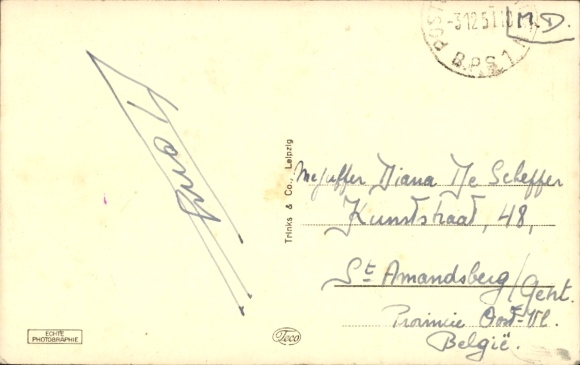 POST
-3.12.51.10
B.P.S.1
M.D.
Trinks & Co., Leipzig
Mejuffer Diana De Scheffer
Kunststraat, 48,
St Amandsberg/Gent.
Provincie Oost-Vl.
België.
ECHTE
PHOTOGRAPHIE
Teco